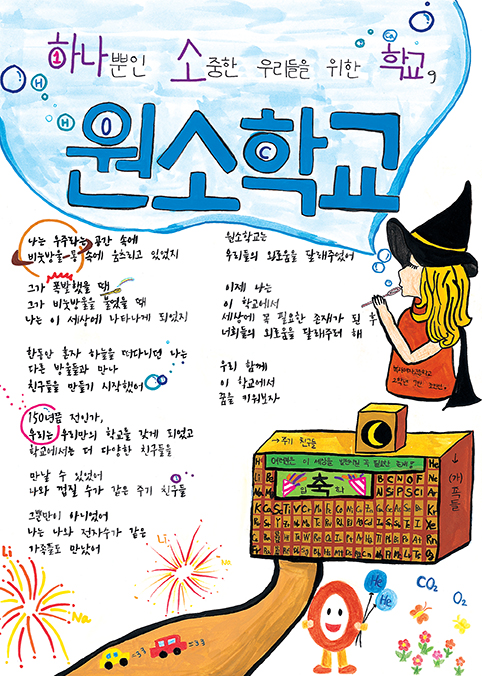 하나뿐인 소중한 우리들을 위한 학교,
Ca
H
H O C
원소학교
나는 우주라는 공간 속에
비눗방울 속에 움츠리고 있었지
그가 폭발했을 때
그가 비눗방울을 불었을 때
나는 이 세상에 나타나게 되었지
한동안 혼자 하늘을 떠다니던 나는
다른 방울들과 만나
친구들을 만들기 시작했어
150년쯤 전인가,
우리는 우리만의 학교를 갖게 되었고
학교에서는 더 다양한 친구들을
만날 수 있었어
나와 껍질 수가 같은 주기 친구들
그뿐만이 아니었어
나는 나와 전자수가 같은
가족들도 만났어
원소학교는
우리들의 외로움을 달래주었어
이제 나는
이 학교에서
세상에 꼭 필요한 존재가 된 후
너희들의 외로움을 달래주려 해
우리 함께
이 학교에서
꿈을 키워보자
→ 주기 친구들
↓ (가)족들
축
H He
Li Be B C N O F Ne
Na Mg Al Si P S Cl Ar
K Ca Sc Ti V Cr
Li
Na
Li
Na
He
He
CO₂
O₂